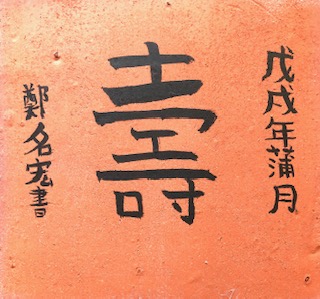 戊戌年蒲月
壽
鄭名宏書